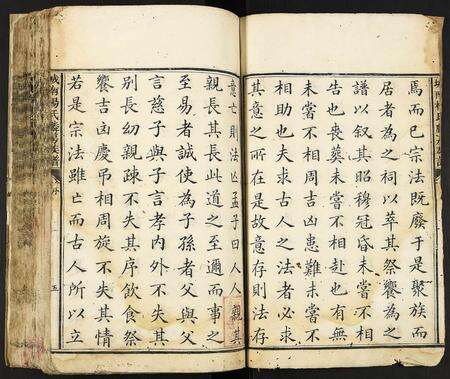 焉而已宗法既廢于是聚族而
居者為之祠以萃其祭饗為之
譜以叙其昭穆冠昏未嘗不相
告也喪葬未嘗不相赴也有無
未嘗不相周吉凶患難未嘗不
相助也夫求古人之法者必求
其意之所在是故意存則法存
意亡則法亡孟子曰人人親其
親長其長此道之至邇而事之
至易者誠使為子孫者父與父
言慈子與子言孝内外不失其
別長幼親疎不失其序飲食祭
饗吉凶慶弔相周旋不失其情
若是宗法雖亡而古人所以立
五